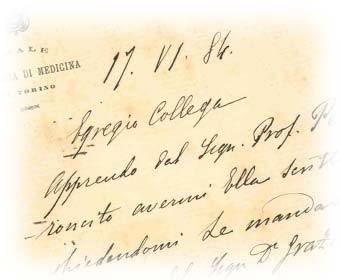 ALE
A DI MEDICINA
TORINO
17. VI. 84.
Egregio Collega
Apprendo dal Sign. Prof. P
roncito avermi Ella scritt
chiedendomi Le manda
Sign Dr Graz